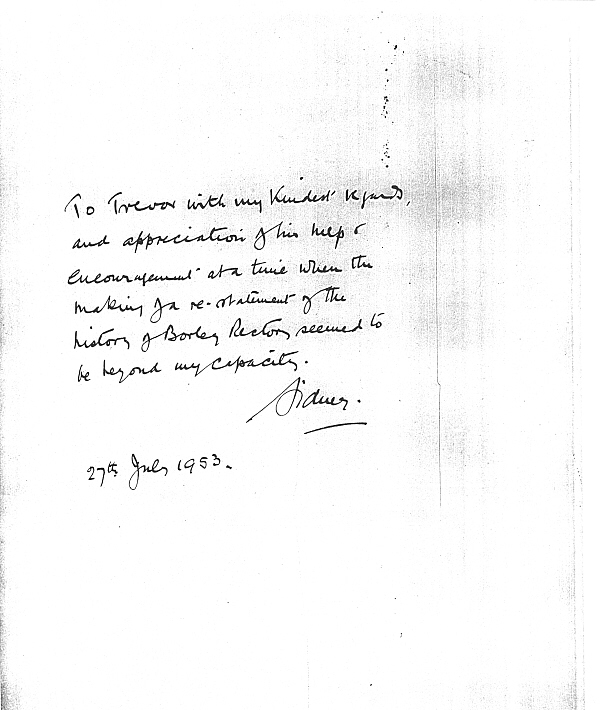 To Trevor with my kindest regards,
and appreciation of his help &
encouragement at a time when the
making of a re-statement of the
history of Borley Rectory seemed to
be beyond my capacity.
Sidney.
27th July 1953.